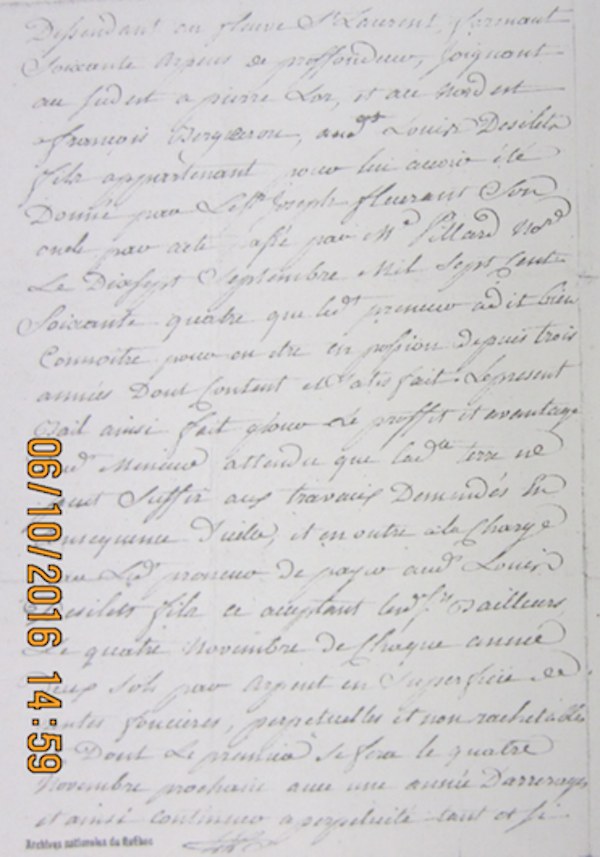 Dependant au fleuve St Laurent, formant
Soixante arpens de proffondeur, joignant
au sud est a pierre Lor, et au Nord est
françois Bergeron, aud.t Louis Desilets
fils appartenant pour lui avoir été
Donné par Joseph fleurant Son
oncle par acte par M.e Pillard No.re
Le Dixsept Septembre Mil Sept Cent
Soixante quatre que led.t preneur a dit bien
Connoitre pour en etre en possion depuis trois
années Dont Content et Satisfait. Le present
Bail ainsi fait pour Le proffit et avantage
Mineur attendu que lad.te terre ne
peut Suffir aux travaux Demandés En
Consequence Dicelle, et en outre a la Charge
Led.t preneur de payer aud.t Louis
Desilets fils ce aceptant Bailleurs
Le quatre Novembre de Chaque année
Deux Sols par Arpent en Superficie de
Rentes foncieres, perpetuelles et non rachetables
Dont Le premier Se fera le quatre
Novembre prochain avec une année Darrerages
et ainsi continuer a perpetuité tant et Si
Archives nationales du Québec
06/10/2016 14:59